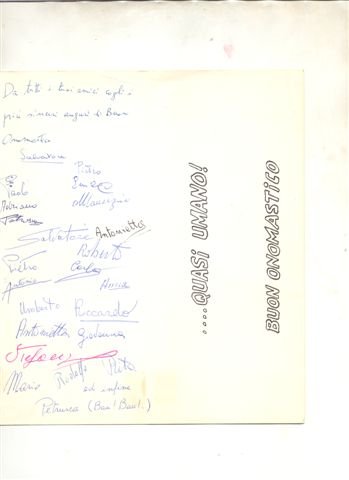 Da tutti i tuoi amici cogli i
più sinceri auguri di Buon
Onomastico
Salvatore
Pietro
Paolo
Adriano
Maurizio
Salvatore Antonietta
Roberto
Pietro Carlo
Antonio Anna
Umberto Riccardo
Antonietta Giovanna
Stefano
Mario Rodolfo Rita
ed infine
Petrusca (Bau! Bau!..)
....QUASI UMANO!
BUON ONOMASTICO